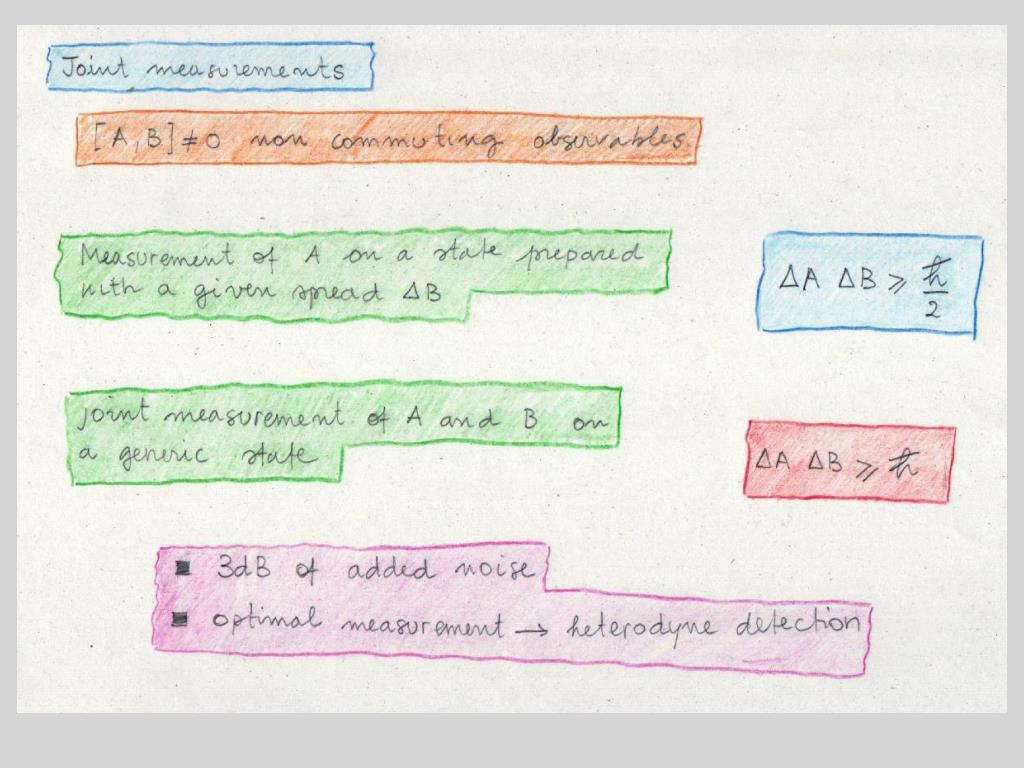 Joint measurements
[A,B]≠0 non commuting observables
Measurement of A on a state prepared
with a given spread ΔB
ΔA ΔB ⩾ ħ/2
Joint measurement of A and B on
a generic state
ΔA ΔB ⩾ ħ
▪ 3dB of added noise
▪ optimal measurement → heterodyne detection